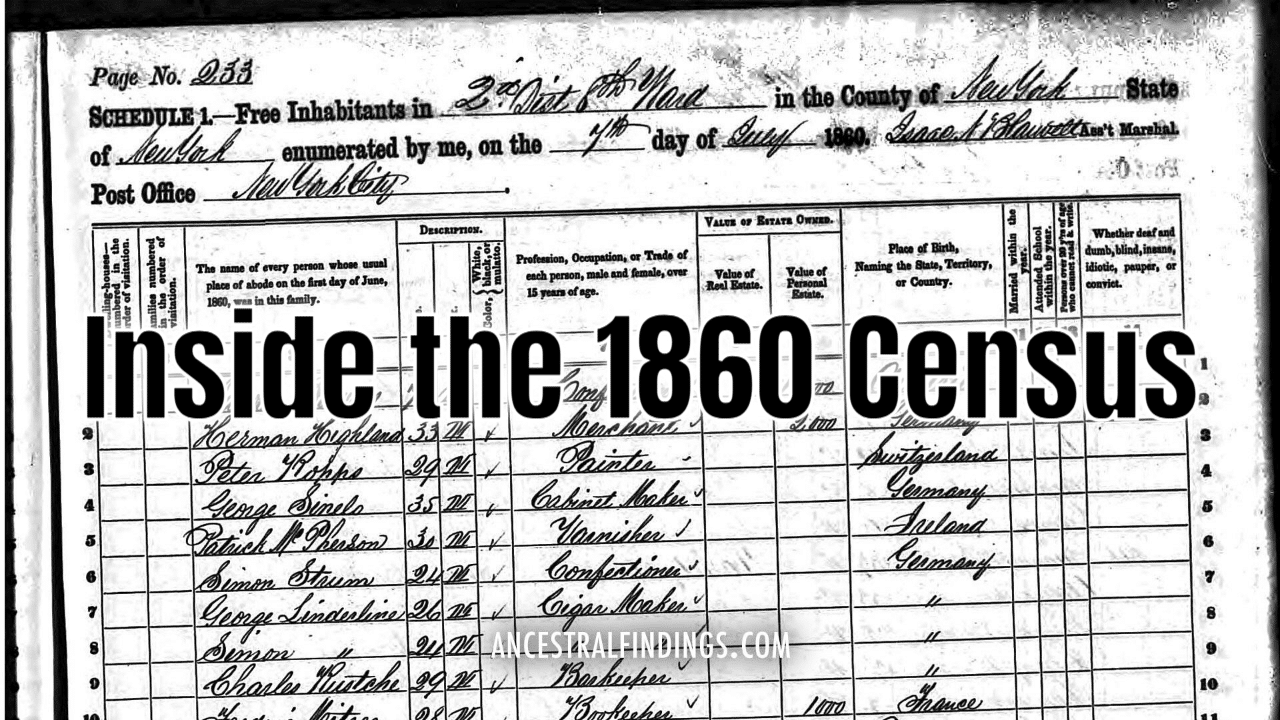 Page No. 233
SCHEDULE 1.—Free Inhabitants in 2nd Dist 6th Ward in the County of New York State
of New York enumerated by me, on the 7th day of July 1860. Isaac Ass't Marshal.
Post Office New York City.
DESCRIPTION.
VALUE OF ESTATE OWNED.
numbered in the order of visitation.
Families numbered in the order of visitation.
The name of every person whose usual
place of abode on the first day of June,
1860, was in this family.
Color, White, black, or mulatto.
Profession, Occupation, or Trade of
each person, male and female, over
15 years of age.
Value of
Real Estate.
Value of
Personal
Estate.
Place of Birth,
Naming the State, Territory,
or Country.
Married within the year.
Attended School within the year.
Persons over 20 y'rs of age who cannot read & write.
Whether deaf and
dumb, blind, insane,
idiotic, pauper, or
convict.
Inside the 1860 Census
1
2
2 Herman Highland 33 M Merchant 2,000 Germany 3
3 Peter Kopps 29 M Painter Switzerland 4
4 George 35 M Cabinet Maker Germany 5
5 Patrick McPherson 30 M Varnisher Ireland 6
6 Simon Strum 24 M Confectioner Germany 7
7 George Linderline 26 M Cigar Maker " 8
8 Simon " 24 M " 9
ANCESTRALFINDINGS.COM
9 Charles 29 M Barkeeper " 10
10 28 M Bookeeper 1000 France 11